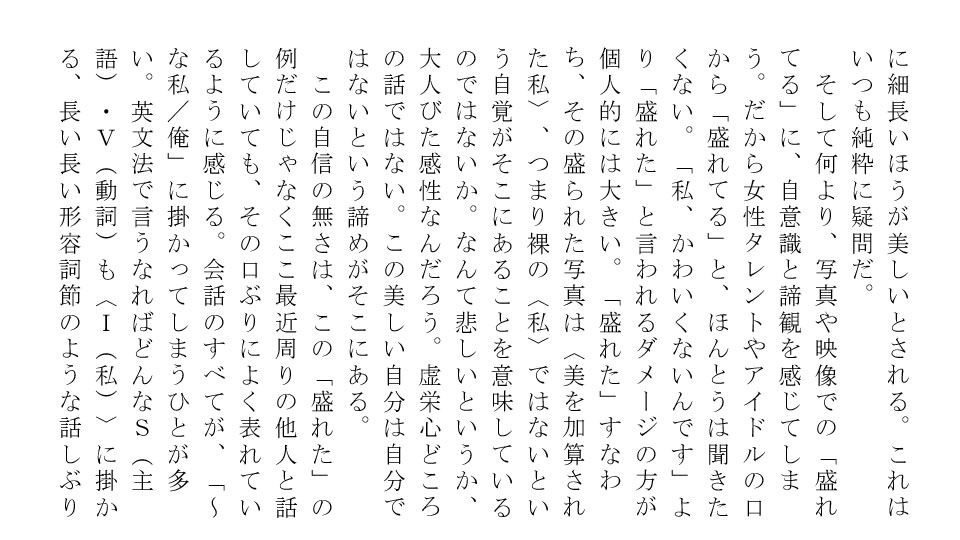 に細長いほうが美しいとされる。これは
いつも純粋に疑問だ。
そして何より、写真や映像での「盛れ
てる」に、自意識と諦観を感じてしま
う。だから女性タレントやアイドルの口
から「盛れてる」と、ほんとうは聞きた
くない。「私、かわいくないんです」よ
り「盛れた」と言われるダメージの方が
個人的には大きい。「盛れた」すなわ
ち、その盛られた写真は〈美を加算され
た私〉、つまり裸の〈私〉ではないとい
う自覚がそこにあることを意味している
のではないか。なんて悲しいというか、
大人びた感性なんだろう。虚栄心どころ
の話ではない。この美しい自分は自分で
はないという諦めがそこにある。
この自信の無さは、この「盛れた」の
例だけじゃなくここ最近周りの他人と話
していても、その口ぶりによく表れてい
るように感じる。会話のすべてが、「〜
な私／俺」に掛かってしまうひとが多
い。英文法で言うなればどんなＳ（主
語）・Ｖ（動詞）も〈Ｉ（私）〉に掛か
る、長い長い形容詞節のような話しぶり